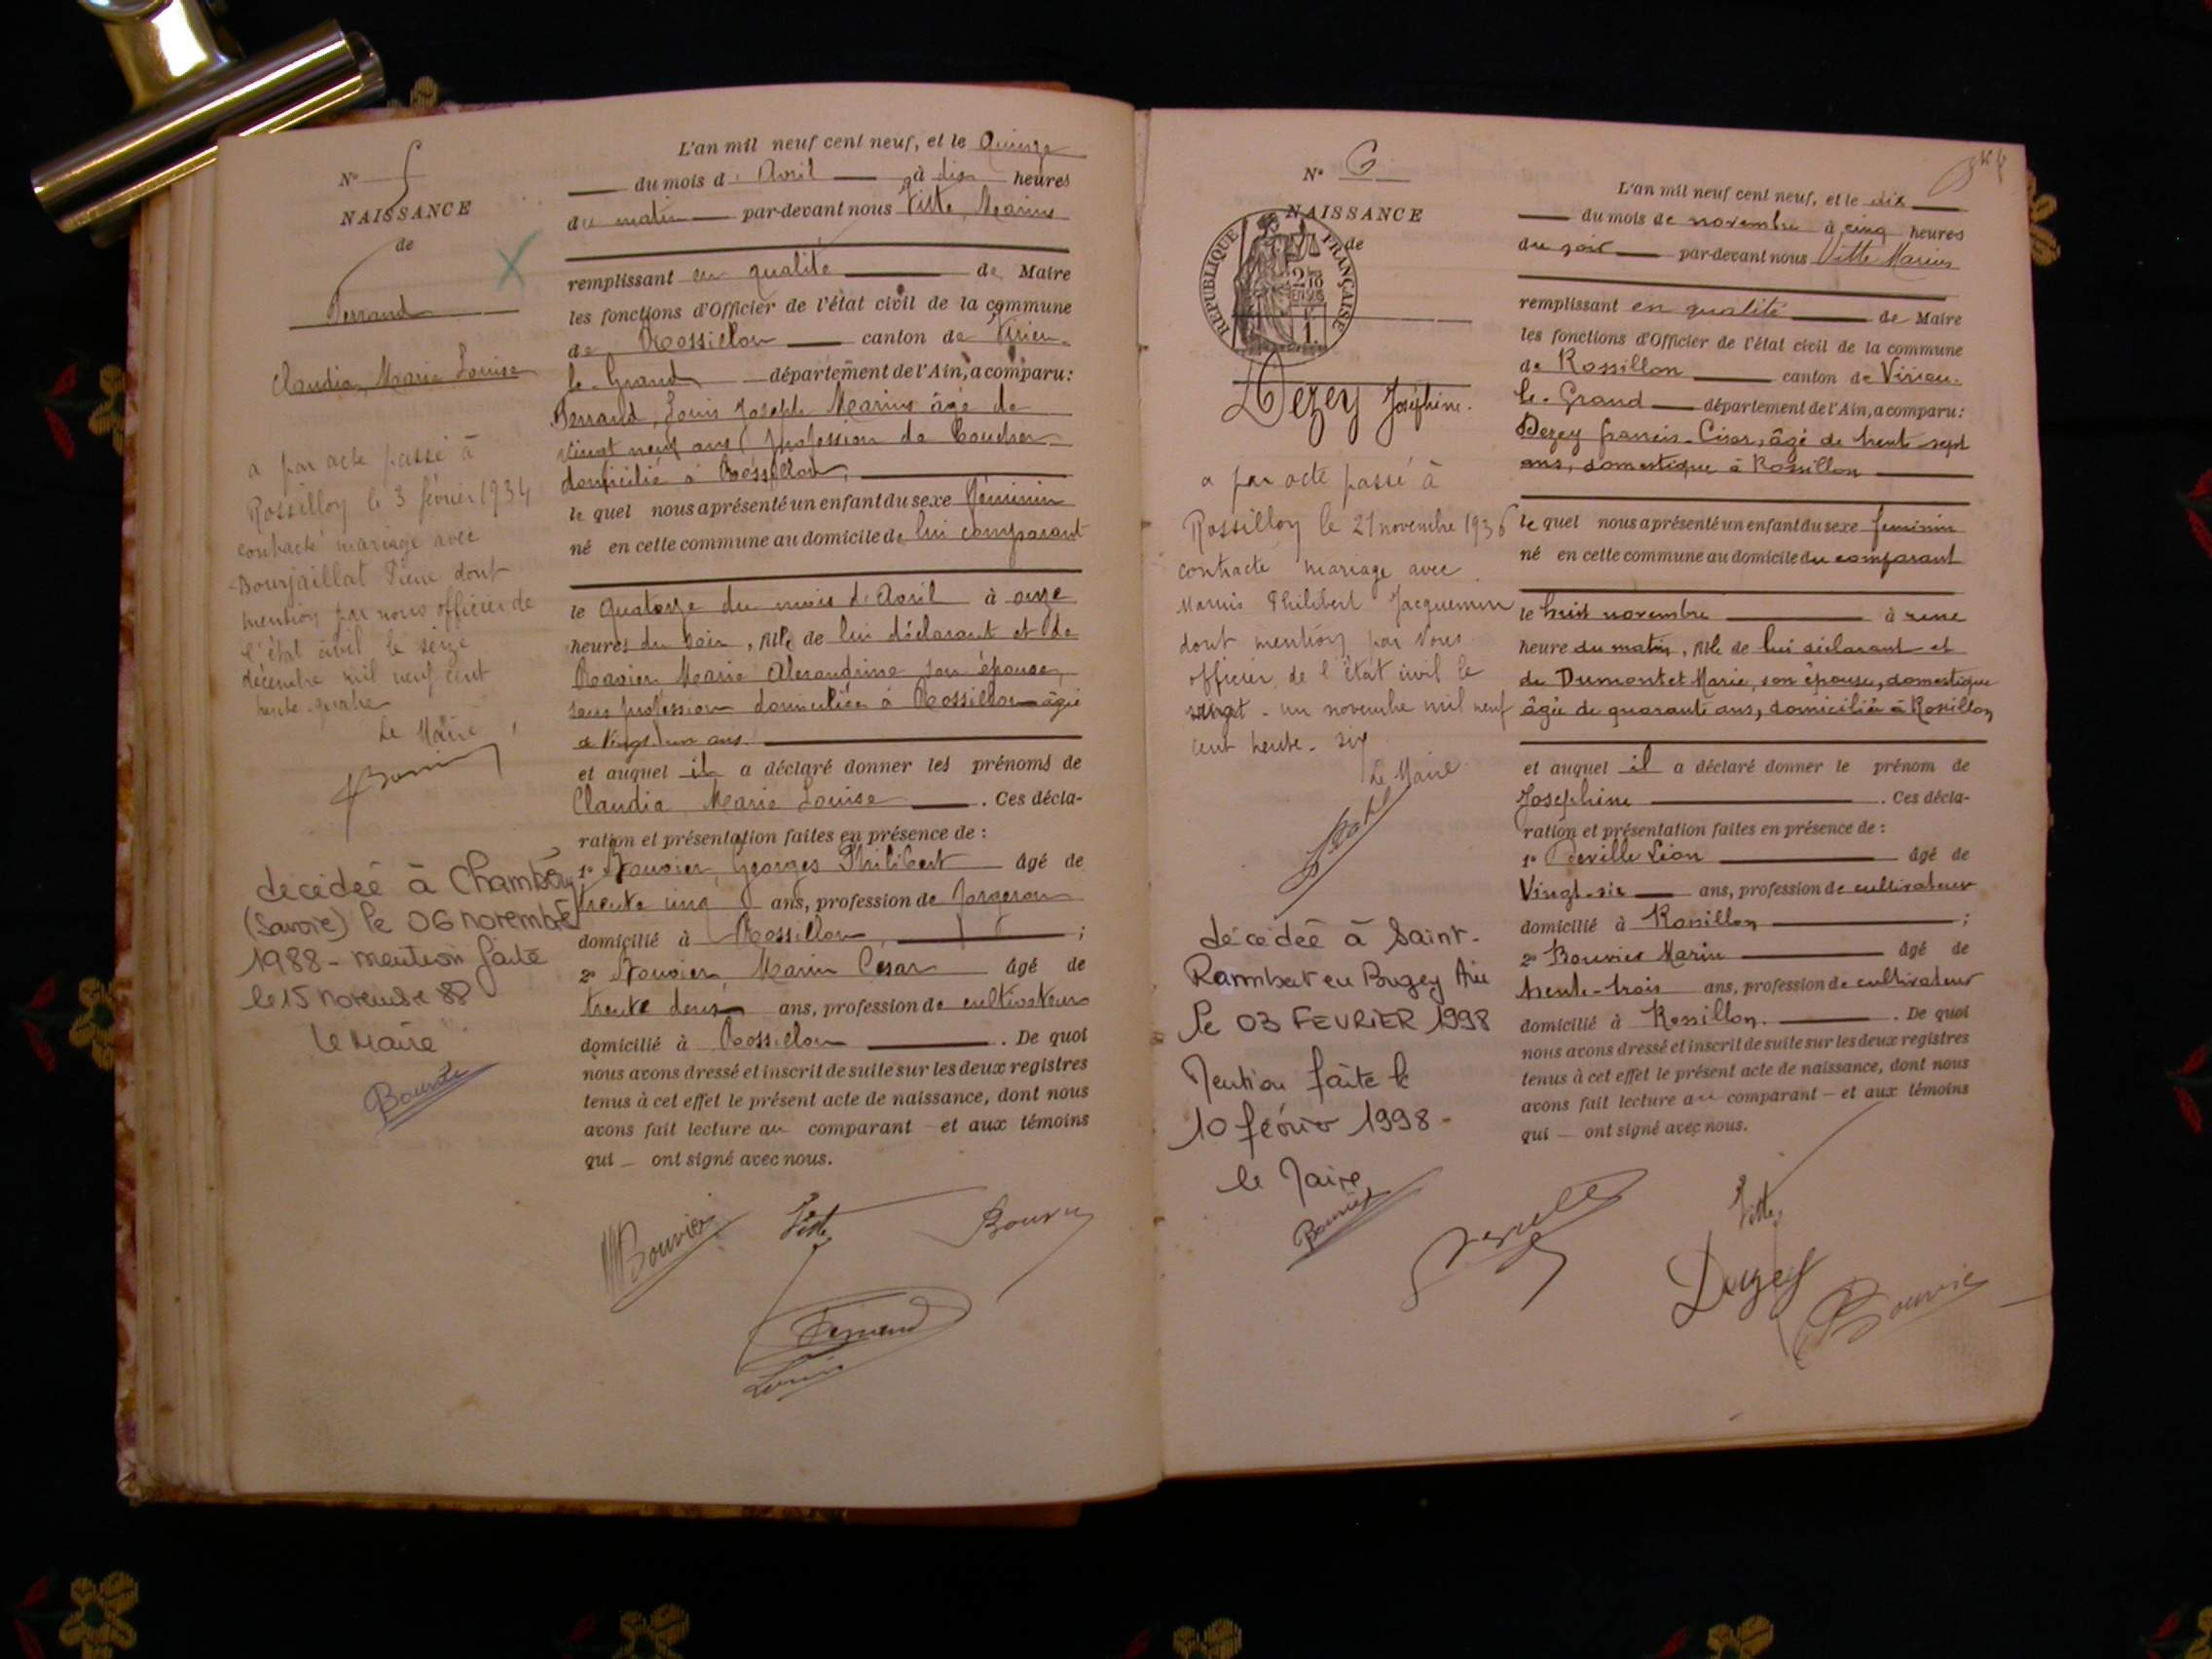 N° 5
NAISSANCE
de
Perrand
Claudia, Marie Louise
a par acte passé à
Rossillon le 3 février 1934
contracté mariage avec
Bourjaillat Pierre dont
mention par nous officier de
l'état civil le seize
décembre mil neuf cent
trente-quatre
Le Maire
décédée à Chambéry
(Savoie) le 06 novembre
1988 - mention faite
le 15 novembre 88
le Maire
L'an mil neuf cent neuf, et le Quinze
du mois d'Avril à dix heures
du matin par-devant nous Vitte, Marius
remplissant en qualité de Maire
les fonctions d'Officier de l'état civil de la commune
de Rossillon canton de Virieu-
le-Grand département de l'Ain, a comparu:
Perrand, Louis Joseph Marius âgé de
vingt neuf ans, profession de boucher
domicilié à Rossillon,
le quel nous a présenté un enfant du sexe féminin
né en cette commune au domicile de lui comparant
le Quatorze du mois d'Avril à onze
heures du soir, fille de lui déclarant et de
Marie Alexandrine son épouse,
sans profession domiciliée à Rossillon âgée
de Vingt ans.
et auquel il a déclaré donner les prénoms de
Claudia Marie Louise. Ces décla-
ration et présentation faites en présence de :
1° Bouvier, Georges Philibert âgé de
trente cinq ans, profession de forgeron
domicilié à Rossillon, ;
2° Bouvier, Marin César âgé de
trente deux ans, profession de cultivateur
domicilié à Rossillon. De quoi
nous avons dressé et inscrit de suite sur les deux registres
tenus à cet effet le présent acte de naissance, dont nous
avons fait lecture au comparant et aux témoins
qui ont signé avec nous.
MBouvier Vitte Bouvier
Perrand
Louis
N° 6
NAISSANCE
de
REPUBLIQUE FRANÇAISE
Dezey Joséphine.
a par acte passé à
Rossillon le 21 novembre 1936
contracté mariage avec
Marius Philibert Jacquemin
dont mention par nous
officier de l'état civil le
vingt-un novembre mil neuf
cent trente-six
Le Maire
décédée à Saint-
Rambert en Bugey Ain
le 03 FEVRIER 1998
Mention faite le
10 février 1998-
le Maire
L'an mil neuf cent neuf, et le dix
du mois de novembre à cinq heures
du soir par-devant nous Vitte Marius
remplissant en qualité de Maire
les fonctions d'Officier de l'état civil de la commune
de Rossillon canton de Virieu-
le-Grand département de l'Ain, a comparu:
Dezey francis-César, âgé de trente-sept
ans, domestique à Rossillon
le quel nous a présenté un enfant du sexe féminin
né en cette commune au domicile du comparant
le huit novembre à une
heure du matin, fille de lui déclarant et
de Dumontet Marie, son épouse, domestique
âgée de quarante ans, domiciliée à Rossillon
et auquel il a déclaré donner le prénom de
Josephine. Ces décla-
ration et présentation faites en présence de :
1° Deville Léon âgé de
Vingt-six ans, profession de cultivateur
domicilié à Rossillon ;
2° Bouvier Marin âgé de
trente-trois ans, profession de cultivateur
domicilié à Rossillon. De quoi
nous avons dressé et inscrit de suite sur les deux registres
tenus à cet effet le présent acte de naissance, dont nous
avons fait lecture au comparant et aux témoins
qui ont signé avec nous.
Deville Vitte
Dezey Bouvier